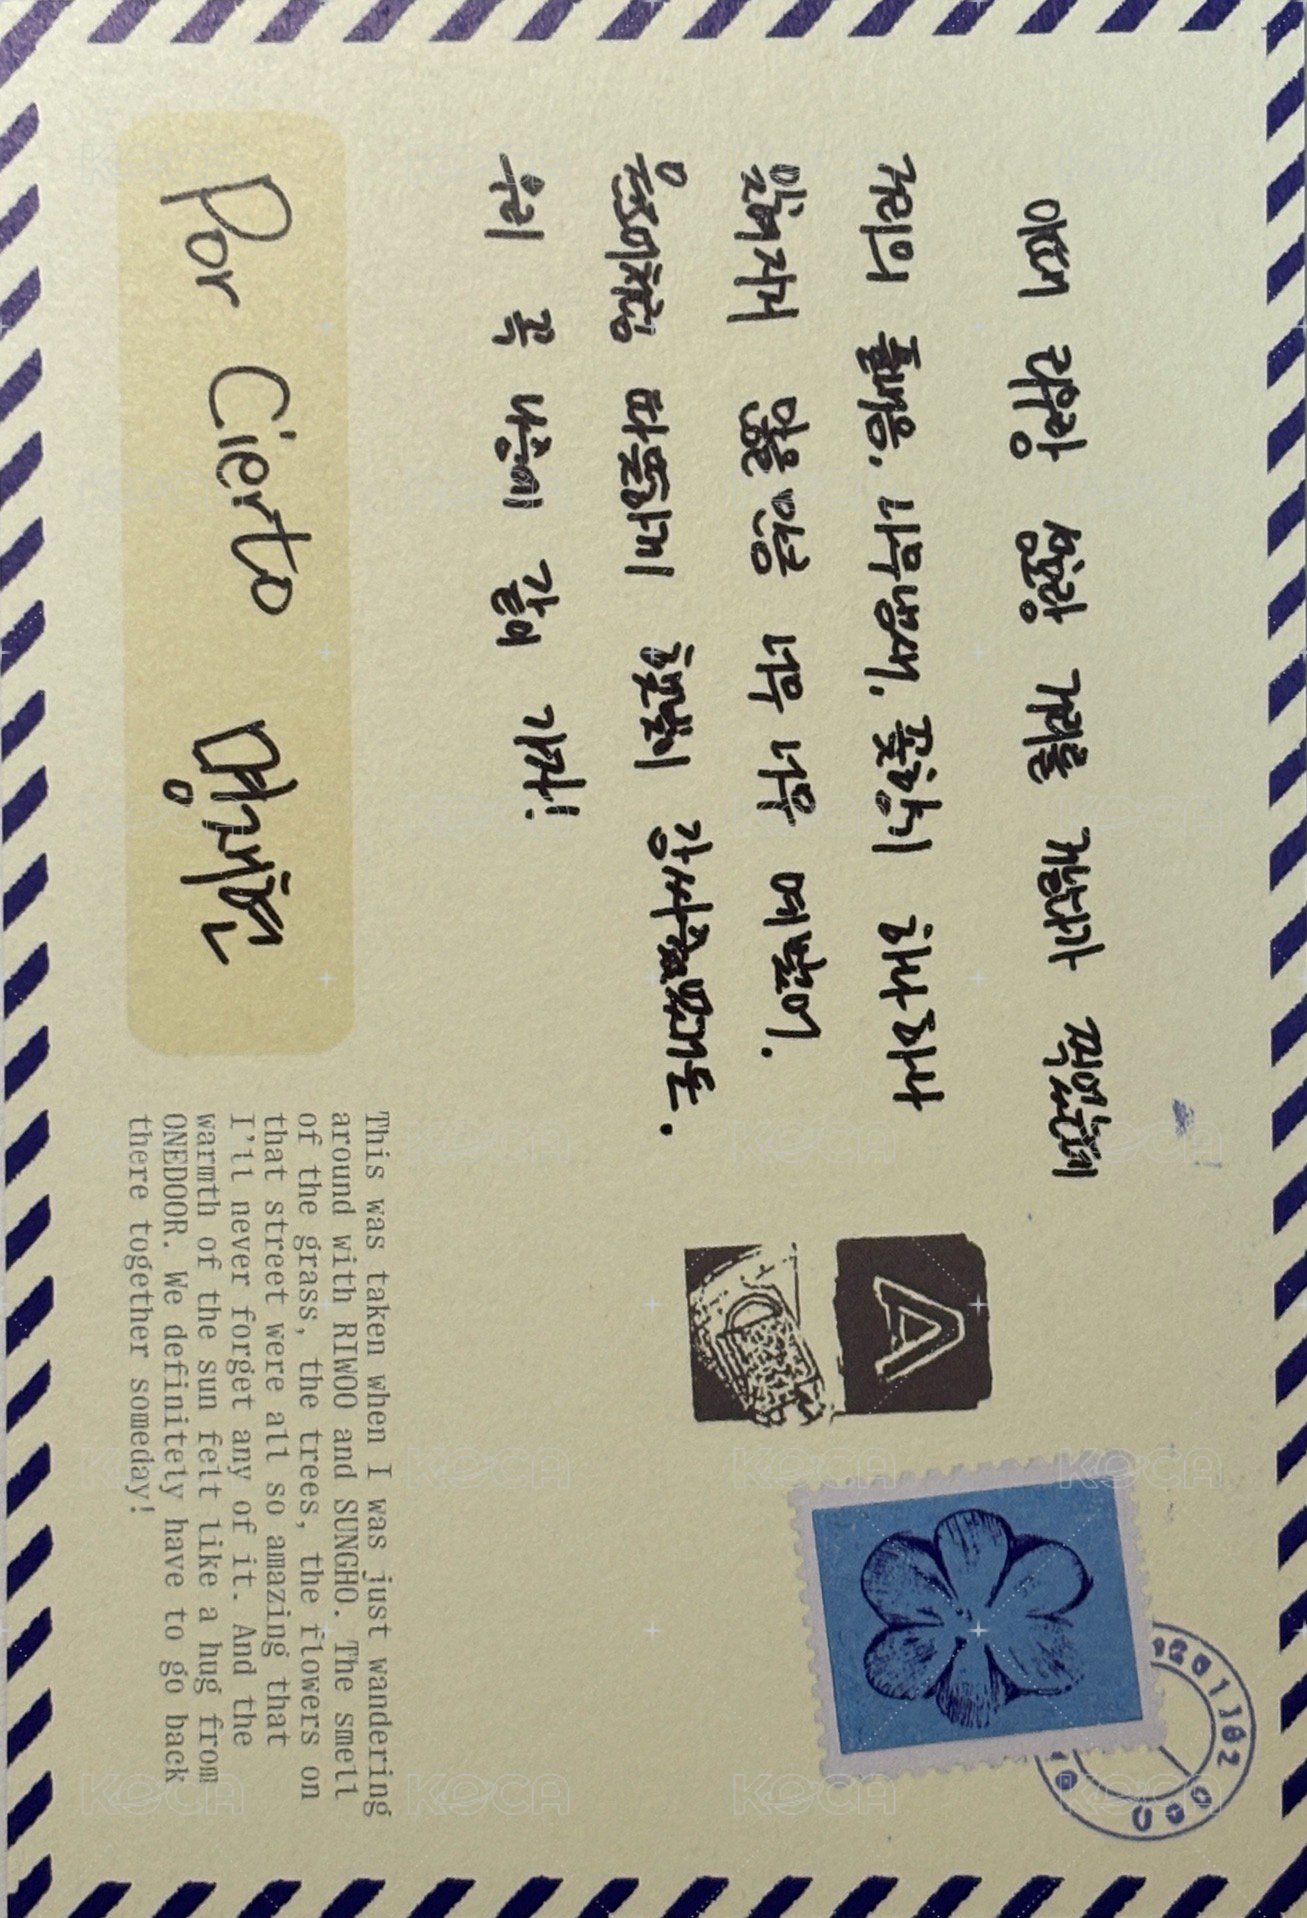 이때 리우랑 성호랑 거리를 거닐다가 찍었는데
거리의 풀내음, 나무냄새, 꽃향기 하나하나
잊혀지지 않을 만큼 너무 너무 예뻤어.
원도어처럼 따뜻하게 햇빛이 감싸줬었거든.
우리 꼭 나중에 같이 가자!
Por Cierto 명재현
A
This was taken when I was just wandering
around with RIWOO and SUNGHO. The smell
of the grass, the trees, the flowers on
that street were all so amazing that
I'll never forget any of it. And the
warmth of the sun felt like a hug from
ONEDOOR. We definitely have to go back
there together someday!
KOCA